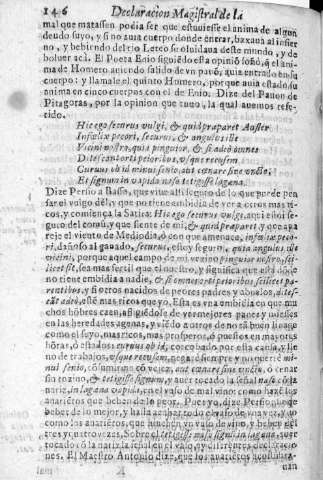 146 Declaracion Magistral de la
mal que matassen podia ser que estuuiesse el anima de algun
deudo suyo, y si no auia cuerpo donde entrar, baxaua al infier
no, y bebiendo del rio Leteo se oluidaua deste mundo, y de
boluer acà. El Poeta Enio siguiendo esta opiniõ soñò, q̃ el ani
ma de Homero auiendo salido de vn pauõ, auia entrado en su
cuerpo: y llamale el quinto Homero, por que auia estado su
anima en cinco cuerpos con el de Enio. Dize del Pauon de
Pitagoras, por la opinion que tuuo, la qual auemos refe
rido.
Hic ego securus vulgi, & quid præparet Auster
Infœlix pecori, securus, & angulus ille
Vicini nostro, quia pinguior, & si adeò omnes
Ditescant orti peioribus, vsque recusem
Curuus ob id minui senio, aut cœnare sine vncto,
Et signum in vapida naso tetigisse lagena.
Dize Persio a Basso, que viue alli seguro de lo que puede pen
sar el vulgo dèl, y que no tiene embidia de ver a otros mas ri
cos, y comiença la Satira: Hic ego securus vulgi, aqui estoi se
guro del comũ, y que siente de mi, & quid præparet, y que apa
reje el viento de Mediodia, ò con que amenace, infœlix pe
cori, dañoso al ganado, securus, estoy seguro, quia angulus ille
vicini, porque aquel campo de mi vezino pinguior nostro, sci
licet sit, sea mas fertil que el nuestro, y significa que està dõde no
tiene embidia a nadie, & si omnes orti peioribus scilicet pa-
rentibus, y si otros nacidos de peores padres y abuelos, dites-
cãt adeò, assi mas ricos que yo. Esta es vna embidia comun que
hõbres cuerdos
has heredades agenas, y viẽdo a otros de no tã buen linage
como el suyo, mas ricos, mas prosperos, ò puestos en mayores
hõras, ò estados curuus ob id, corcobado, por esta causa, y lle
no de trabajos, vsque recusem, negarè siempre y no querrè mi
nui senio, cõsumirme cõ vejez, aut cœnare sine vncto, ò cenar
sin tozino, & tetigisse signum, y auer tocado la señal naso cõ la
nariz, in lagena vapida, en el vaso de mal vino: como hazẽ los
auariẽtos que beben de lo peor. Por esso, dize Persio, quie
beber de lo mejor, y
rres y
tocado cõ la nariz la señal
El Maestro Antonio dize, que los auariẽtos acostũbra-
uan